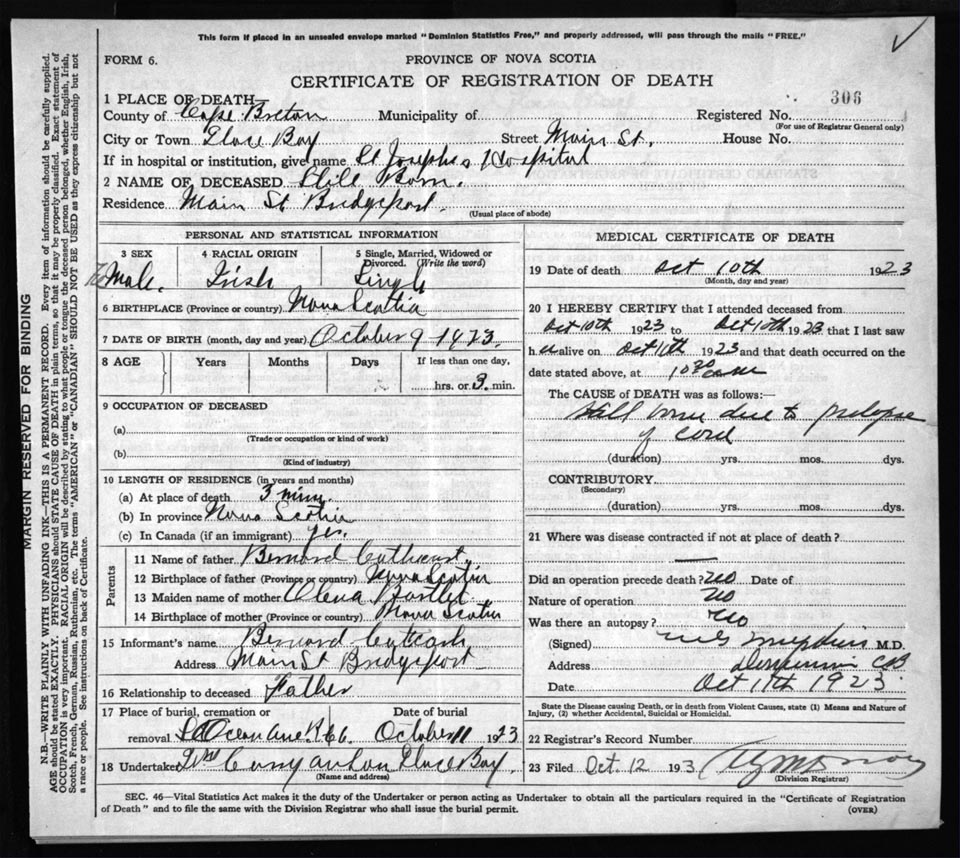 This form if placed in an unsealed envelope marked "Dominion Statistics Free," and properly addressed, will pass through the mails "FREE."
FORM 6.
PROVINCE OF NOVA SCOTIA
CERTIFICATE OF REGISTRATION OF DEATH
306
1 PLACE OF DEATH
County of Cape Breton Municipality of Registered No.
(For use of Registrar General only)
City or Town Glace Bay Street Main St. House No.
If in hospital or institution, give name St Josephs Hospital
2 NAME OF DECEASED Still Born.
Residence Main St Bridgeport.
(Usual place of abode)
PERSONAL AND STATISTICAL INFORMATION
3 SEX 4 RACIAL ORIGIN 5 Single, Married, Widowed or Divorced. (Write the word)
Male. Irish Single
6 BIRTHPLACE (Province or country) Nova Scotia
7 DATE OF BIRTH (month, day and year) October 9 1923.
8 AGE Years Months Days If less than one day,
hrs. or 3 min.
9 OCCUPATION OF DECEASED
(a)
(Trade or occupation or kind of work)
(b)
(Kind of industry)
10 LENGTH OF RESIDENCE (in years and months)
(a) At place of death 3 min
(b) In province Nova Scotia
(c) In Canada (if an immigrant) yes.
Parents
11 Name of father Bernard Cathcart
12 Birthplace of father (Province or country) Nova Scotia
13 Maiden name of mother Olena Bartlet
14 Birthplace of mother (Province or country) Nova Scotia
15 Informant's name Bernard Cathcart
Address Main St Bridgeport
16 Relationship to deceased Father
17 Place of burial, cremation or Date of burial
removal Ocean Ave October 11 1923
18 Undertaker Wm Glace Bay.
(Name and address)
MEDICAL CERTIFICATE OF DEATH
19 Date of death Oct 10th 1923
(Month, day and year)
20 I HEREBY CERTIFY that I attended deceased from
Oct 10th 1923 to Oct 10th 1923 that I last saw
h alive on Oct 10th 1923 and that death occurred on the
date stated above, at 10 30 am
The CAUSE OF DEATH was as follows:—
Still born due to prolapse
of cord
(duration) yrs. mos. dys.
CONTRIBUTORY.
(Secondary)
(duration) yrs. mos. dys.
21 Where was disease contracted if not at place of death?
Did an operation precede death? no Date of
Nature of operation no
Was there an autopsy? no
(Signed) M.D.
Address Dominion CB
Date Oct 11th 1923
State the Disease causing Death, or in death from Violent Causes, state (1) Means and Nature of
Injury, (2) whether Accidental, Suicidal or Homicidal.
22 Registrar's Record Number
23 Filed Oct 12 193
(Division Registrar)
SEC. 46—Vital Statistics Act makes it the duty of the Undertaker or person acting as Undertaker to obtain all the particulars required in the "Certificate of Registration
of Death" and to file the same with the Division Registrar who shall issue the burial permit.
(OVER)
MARGIN RESERVED FOR BINDING
N.B.—WRITE PLAINLY WITH UNFADING INK—THIS IS A PERMANENT RECORD. Every item of information should be carefully supplied.
AGE should be stated EXACTLY. PHYSICIANS should STATE CAUSE OF DEATH in plain terms, so that it may be properly classified. Exact statement of
OCCUPATION is very important. RACIAL ORIGIN will be described by stating to what people or tongue the deceased person belonged, whether English, Irish,
Scotch, French, German, Russian, Ruthenian, etc. The terms "AMERICAN" or "CANADIAN" SHOULD NOT BE USED as they express citizenship but not
a race or people. See instructions on back of Certificate.